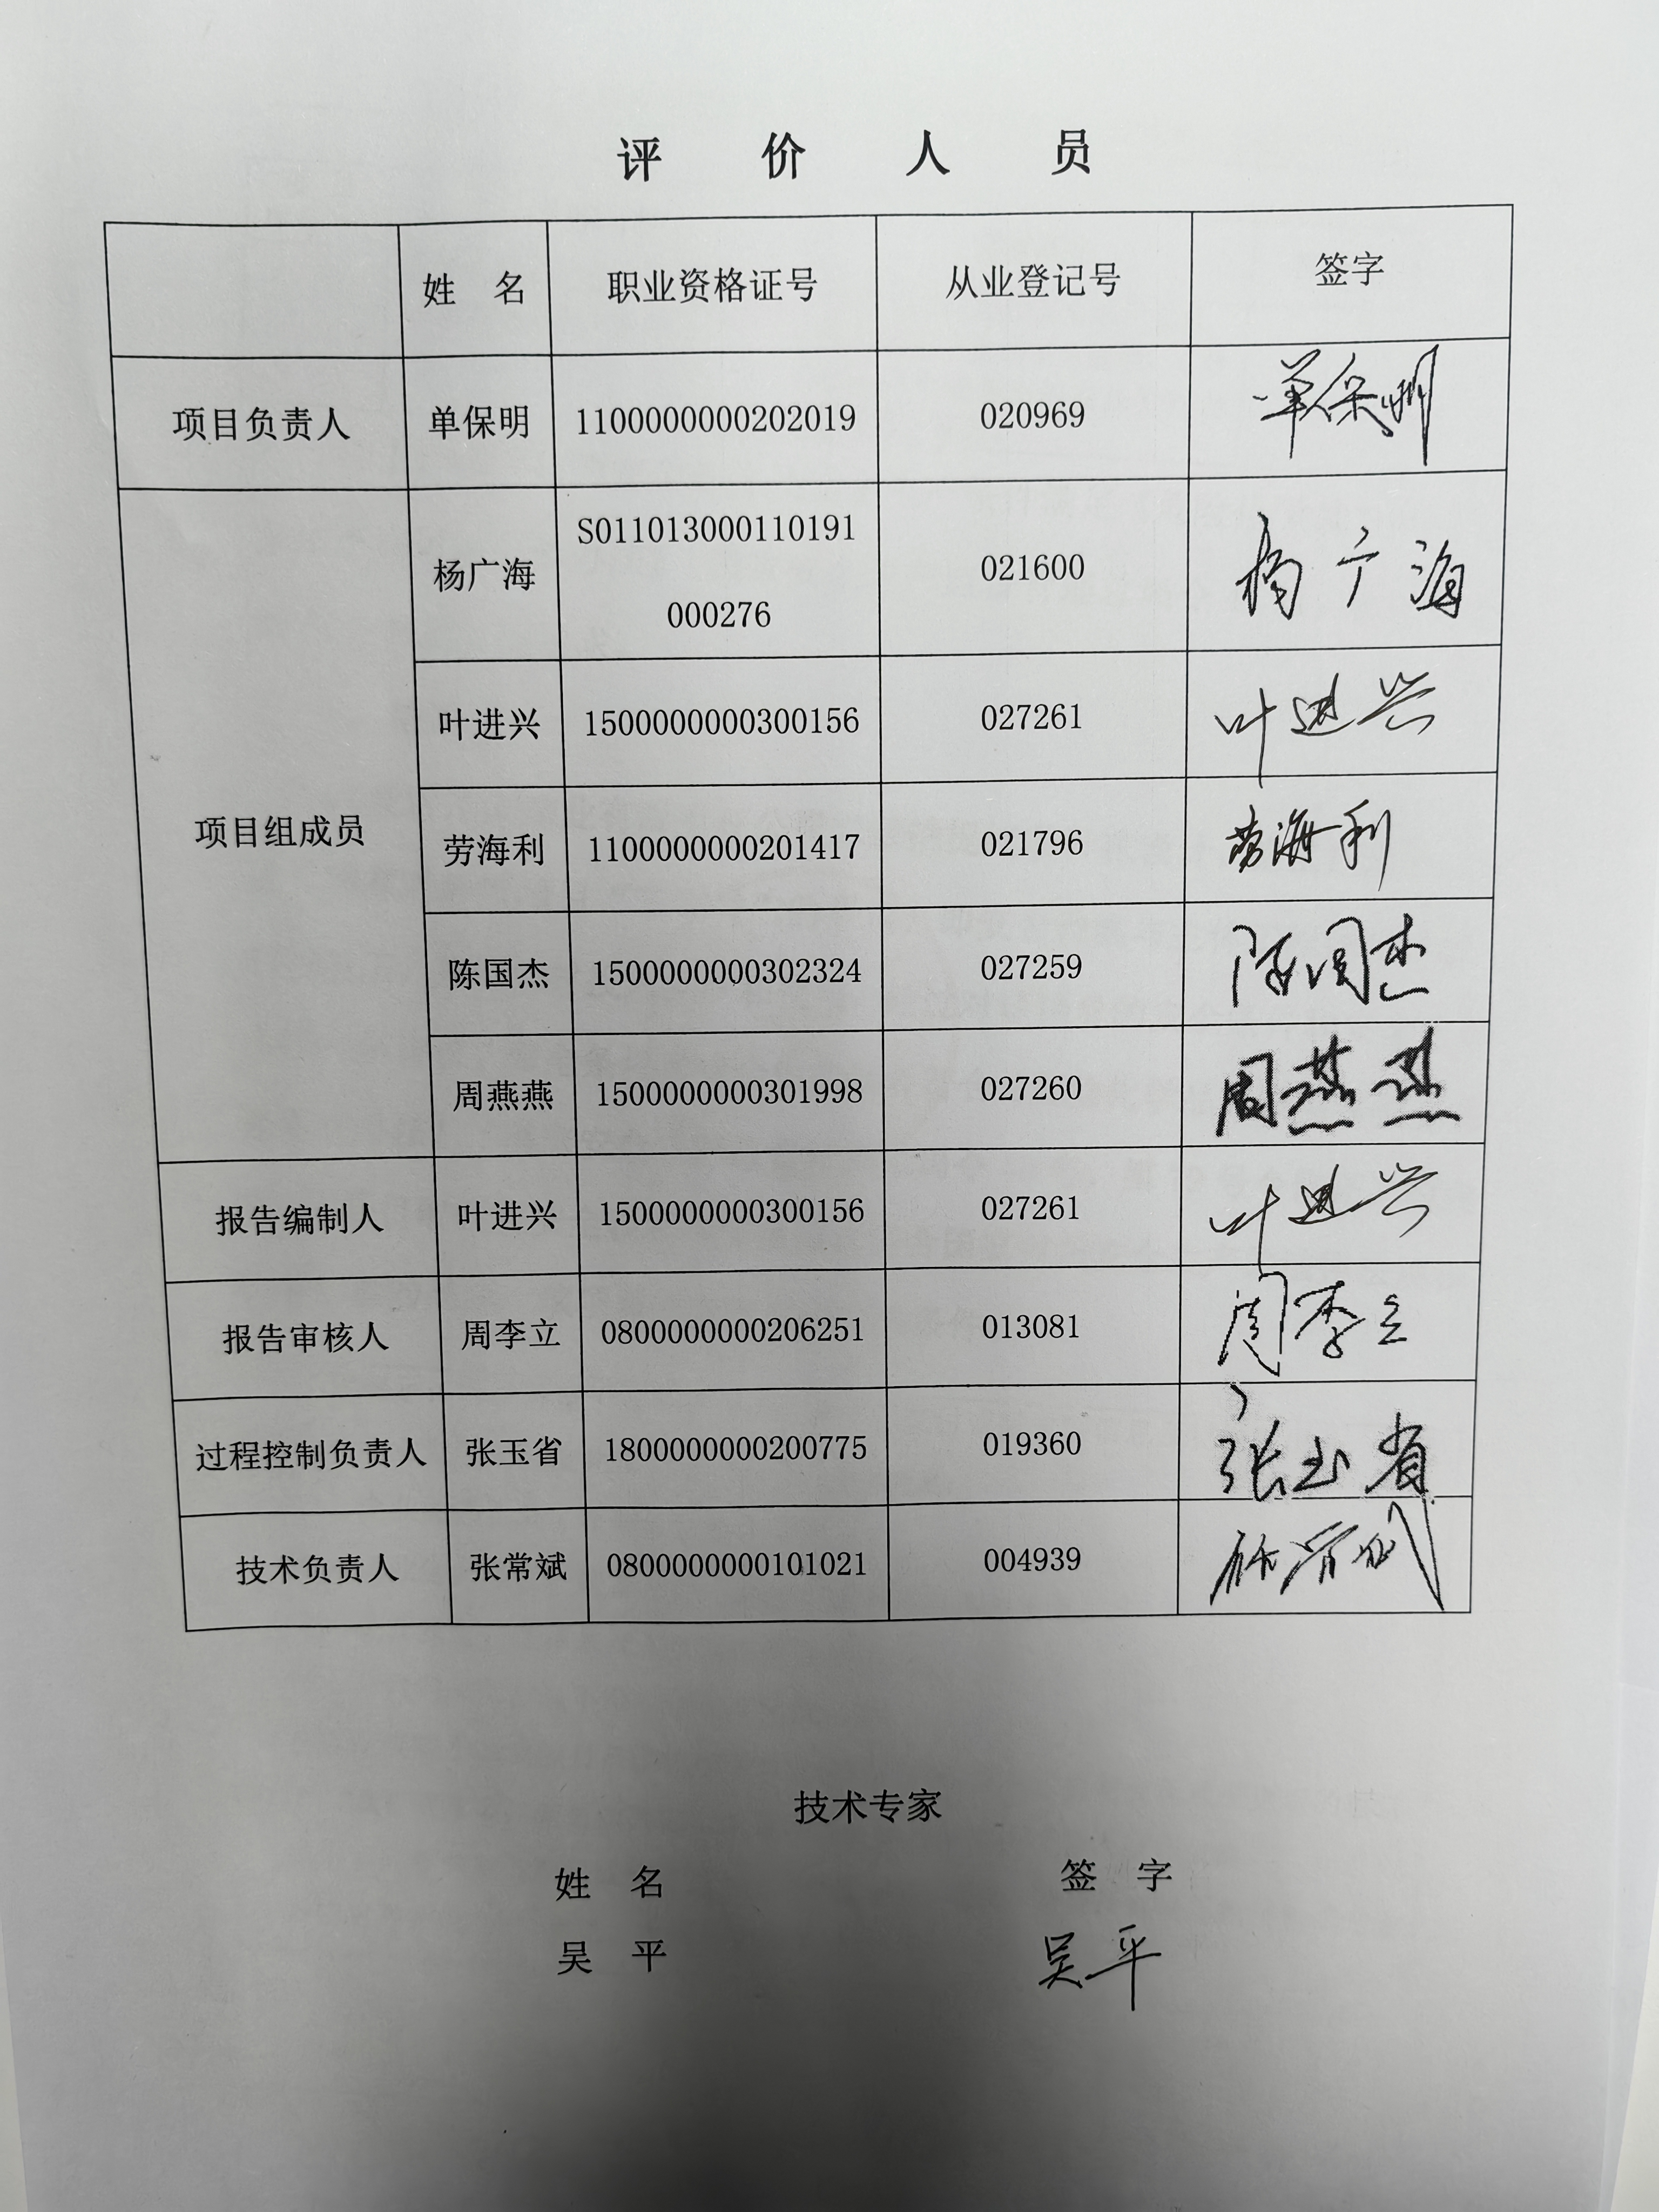 评 价 人 员
姓 名 职业资格证号 从业登记号 签字
项目负责人 单保明 1100000000202019 020969 单保明
项目组成员
杨广海 S011013000110191000276 021600 杨广海
叶进兴 1500000000300156 027261 叶进兴
劳海利 1100000000201417 021796 劳海利
陈国杰 1500000000302324 027259 陈国杰
周燕燕 1500000000301998 027260 周燕燕
报告编制人 叶进兴 1500000000300156 027261 叶进兴
报告审核人 周李立 0800000000206251 013081 周李立
过程控制负责人 张玉省 1800000000200775 019360 张玉省
技术负责人 张常斌 0800000000101021 004939 张常斌
技术专家
姓 名 签 字
吴 平 吴平